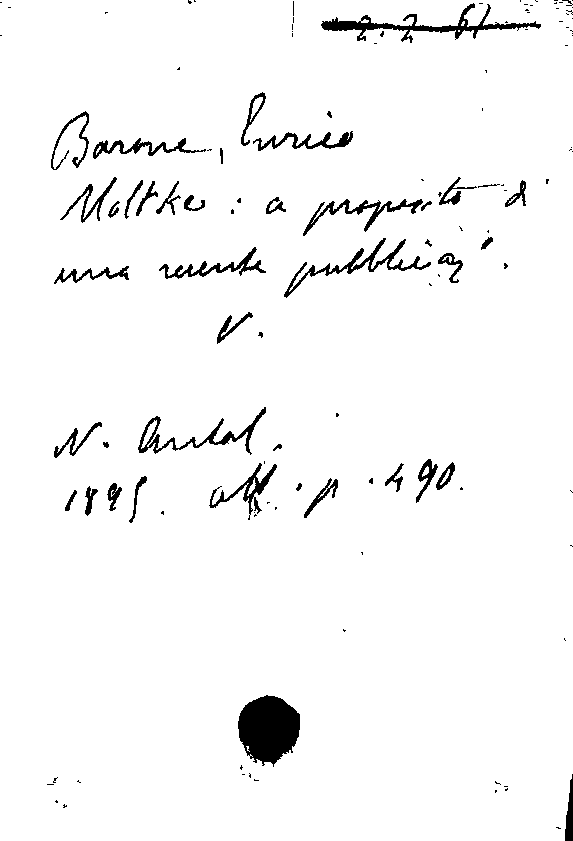 2. 2 61
Barone, Enrico
Moltke : a proposito di
una recente pubblicaz°.
V.
N. Antol.
1895. ott. p. 490.